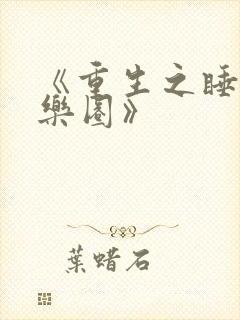 《重生之睡
樂園》
葉蜡石